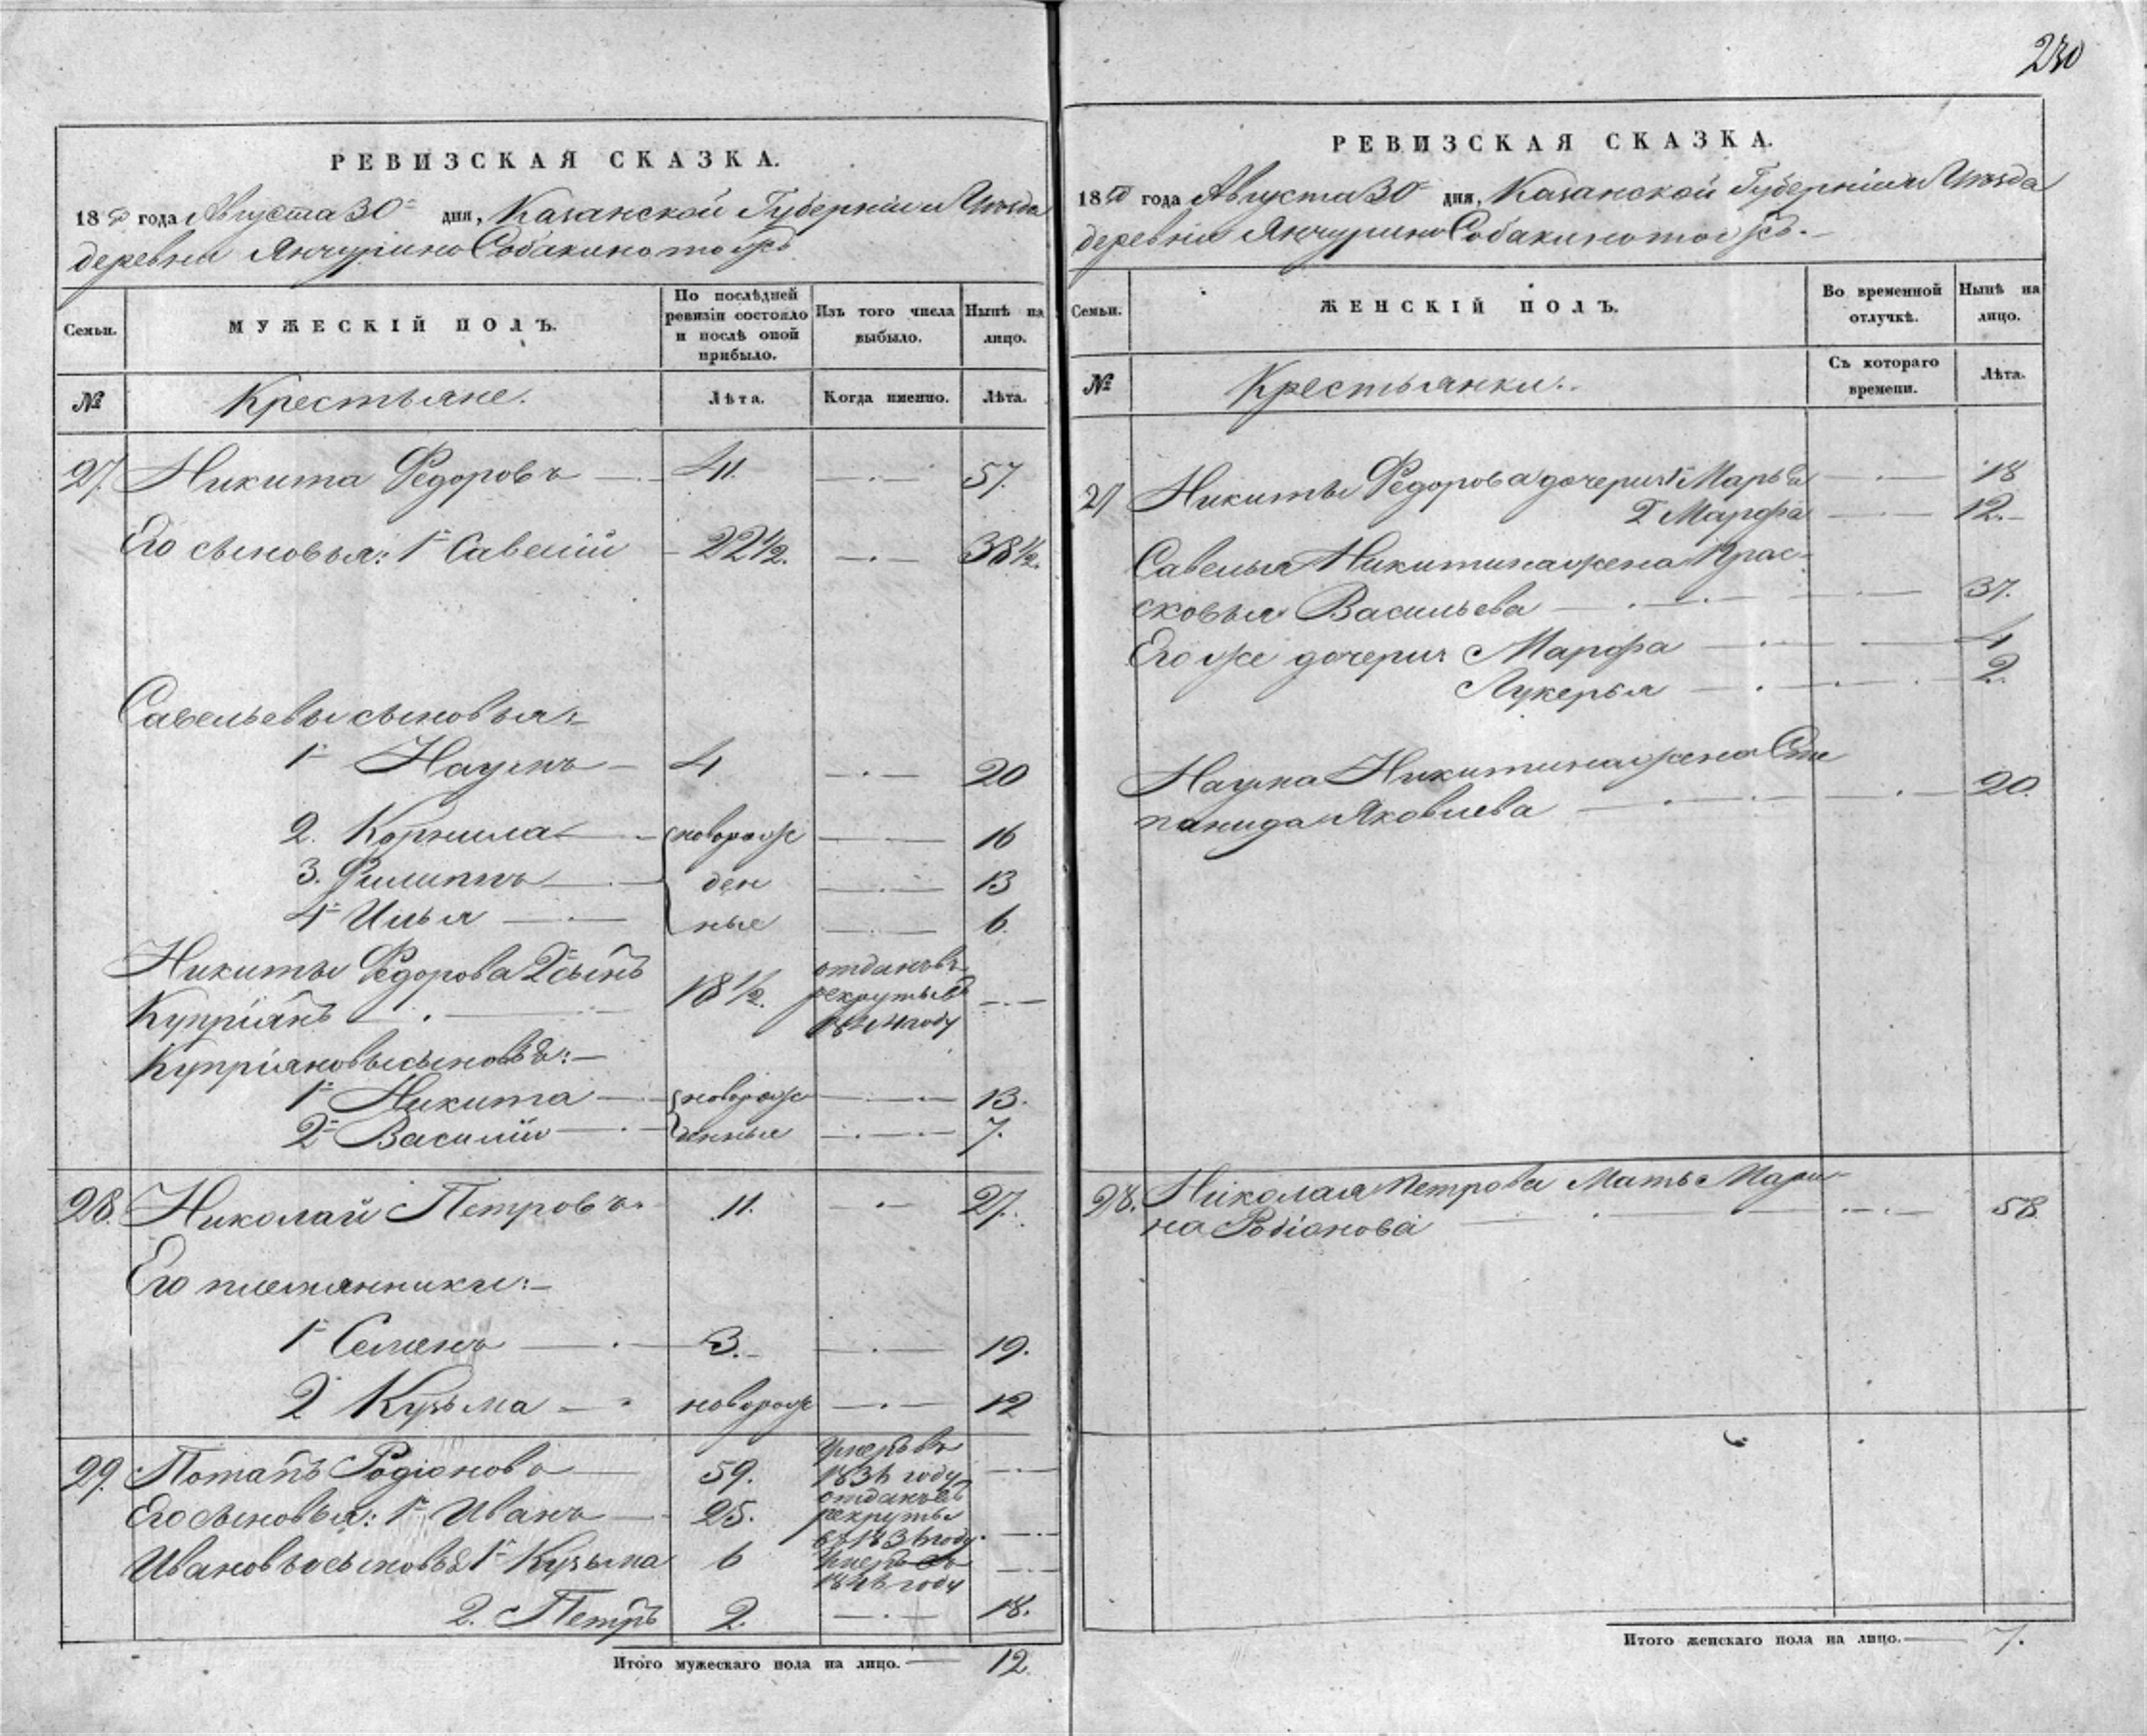 230
РЕВИЗСКАЯ СКАЗКА.
1850 года Августа 30 дня, Казанской Губерніи и Уѣзда
деревни Янчурино Собакино тожъ
Семьи.
МУЖЕСКІЙ ПОЛЪ.
По послѣдней
ревизіи состояло
и послѣ оной
прибыло.
Изъ того числа
выбыло.
Нынѣ на
лицо.
№
Крестьяне.
Лѣта.
Когда именно.
Лѣта.
27. Никита Федоровъ 41. 57.
Его сыновья: 1й Савелій 22 1/2. 38 1/2.
Савельевы сыновья:
1й Наумъ 4 20
2. Корнила новорож 16
3. Филиппъ ден 13
4й Илья ные 6.
Никиты Федорова 2й сынъ
Купріянъ 18 1/2. отданъ въ
рекруты въ
1844 году
Купріяновы сыновья:
1й Никита новорож 13.
2й Василій денныя 7.
28. Николай Петровъ 11. 27.
Его племянники:
1й Семенъ 3. 19.
2й Кузьма новорож 12
29. Потапъ Родіоновъ 59. Умеръ въ
1836 году
Его сыновья: 1й Иванъ 25. отданъ въ
рекруты
въ 1836 году.
Ивановы сыновья 1й Кузьма 6 Умеръ въ
1846 году
2. Петръ 2. 18.
Итого мужескаго пола на лицо. 12.
РЕВИЗСКАЯ СКАЗКА.
1850 года Августа 30 дня, Казанской Губерніи и Уѣзда
деревни Янчурино Собакино тожъ.
Семьи.
ЖЕНСКІЙ ПОЛЪ.
Во временной
отлучкѣ.
Нынѣ на
лицо.
№
Крестьянки.
Съ котораго
времени.
Лѣта.
27 Никиты Федорова дочери 1 Марья 18
2 Марфа 12.
Савелья Никитина жена Прас-
ковья Васильева 37.
Его же дочери Марфа 4
Лукерья 2.
Наума Никитина жена Сте
панида Яковлева 20.
28. Николая Петрова Мать Мари-
на Родіонова 58.
Итого женскаго пола на лицо. 7.